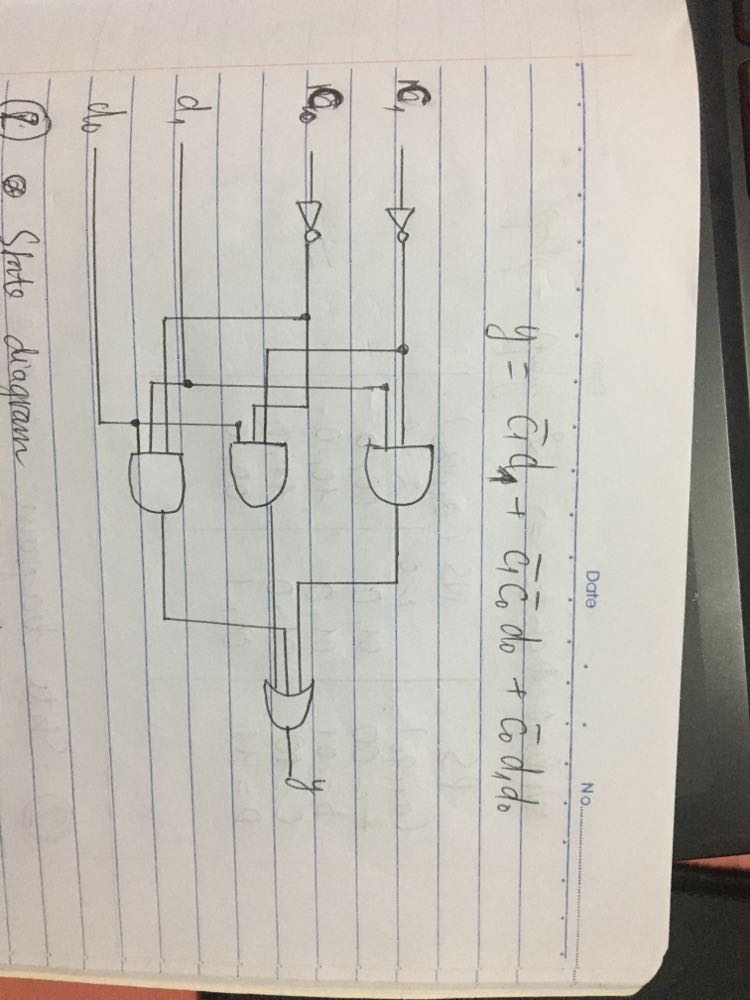 Date No.
y = c̄₁d₁ + c̄₁c̄₀d₀ + c̄₀d₁d₀
C₁
C₀
y
d₁
d₀
State diagram